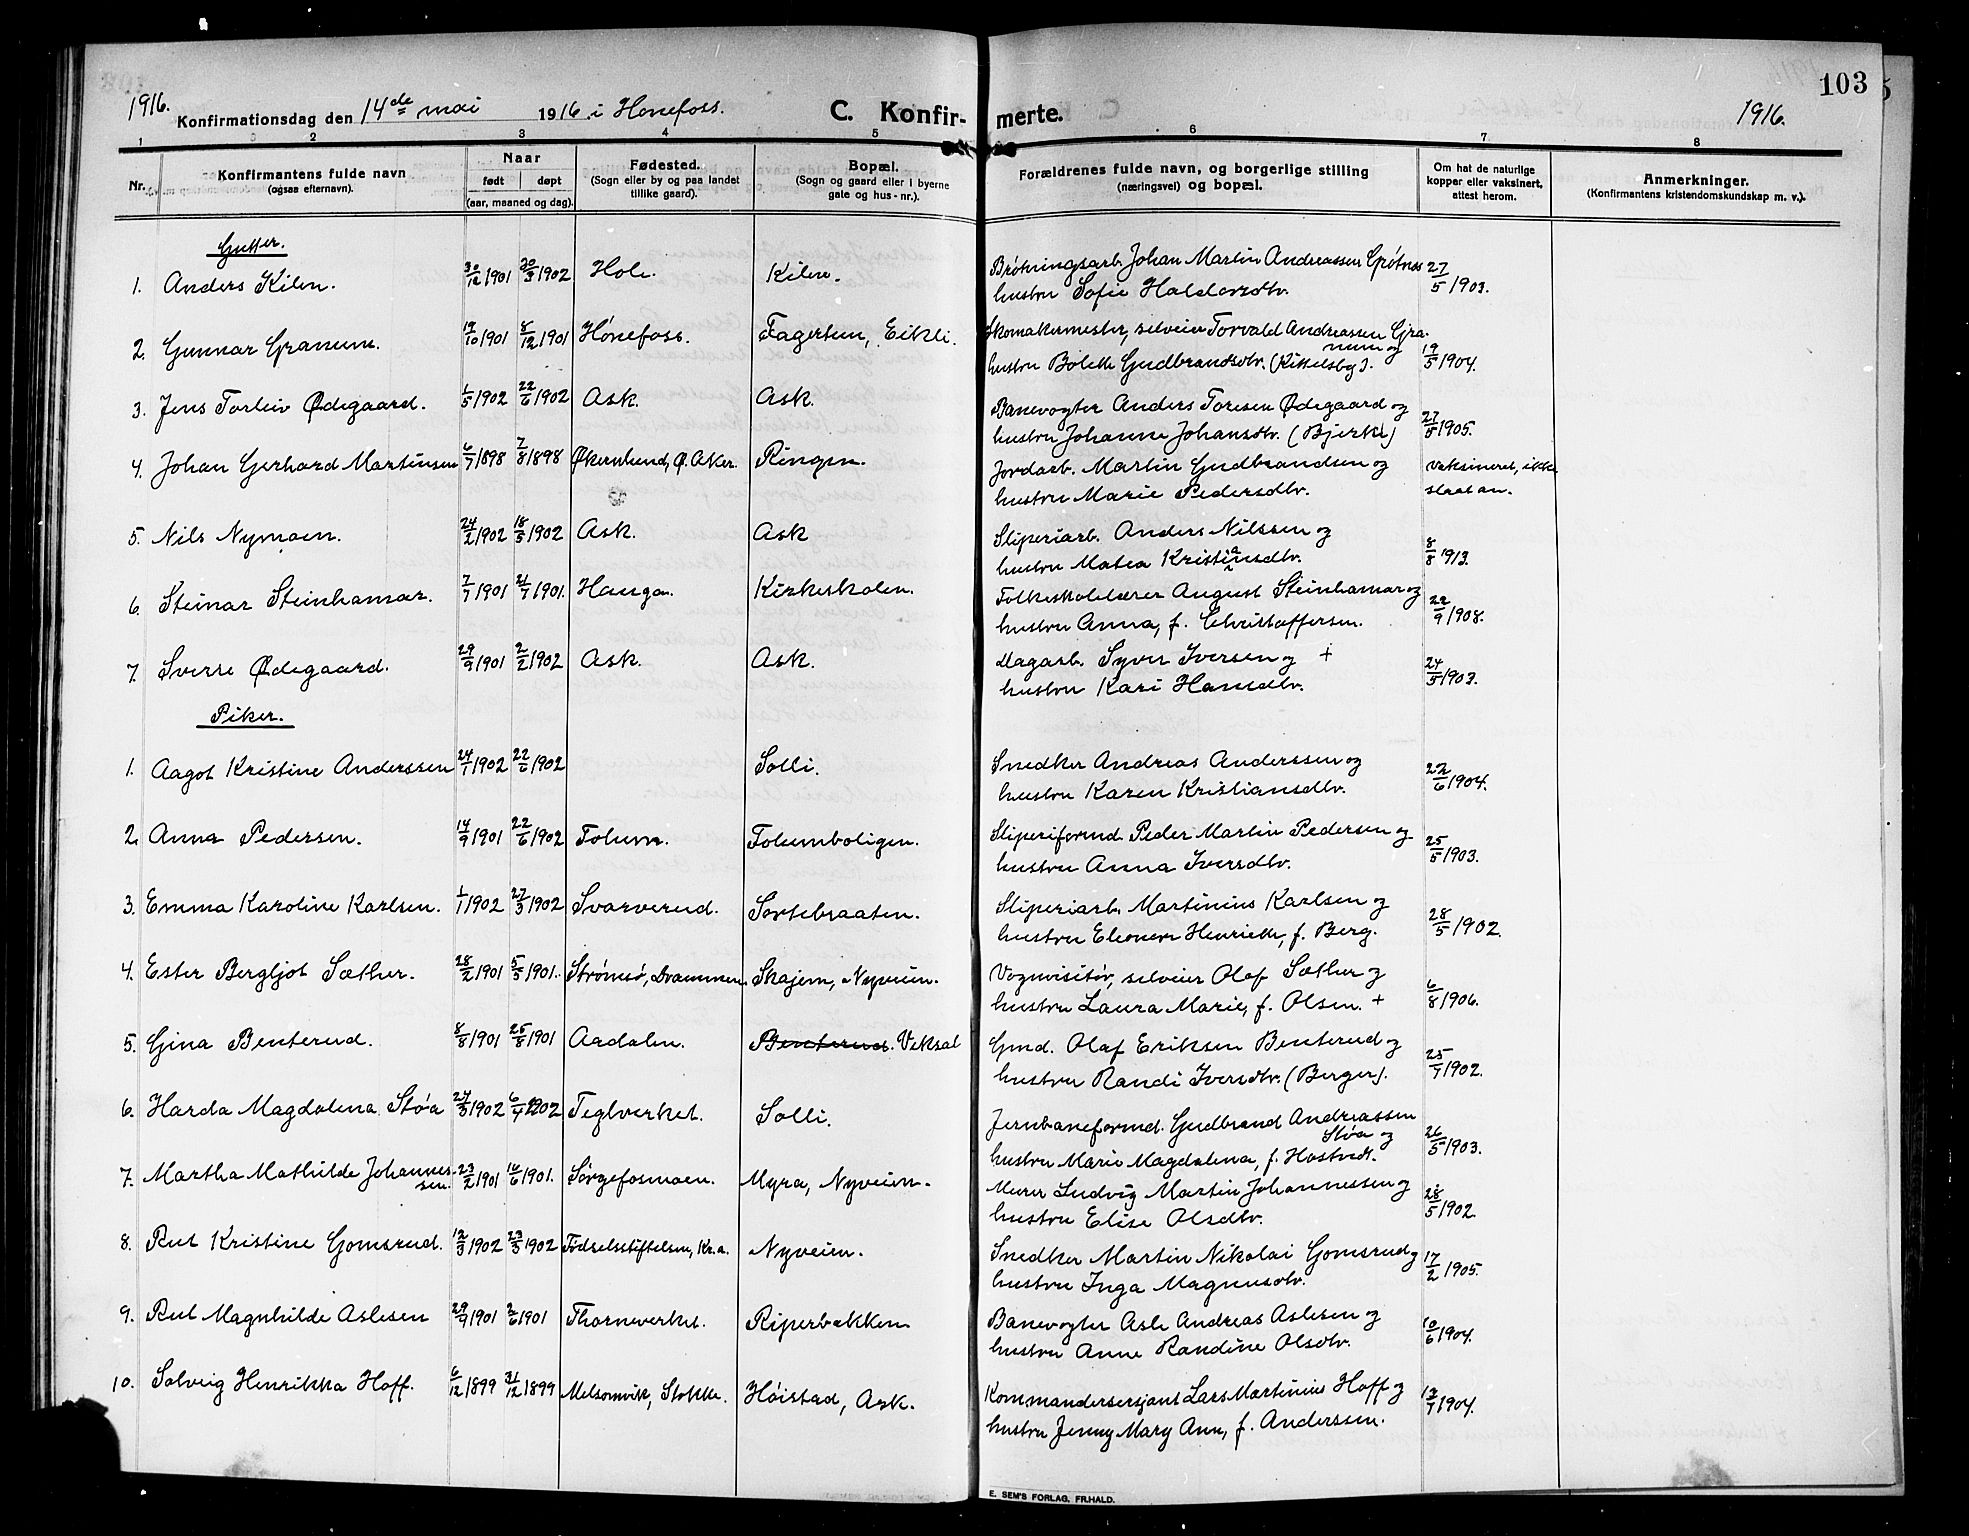 103
1916. Konfirmationsdag den 14de mai 1916 i Hønefoss. C. Konfirmerte. 1916.
1 2 3 4 5 6 7 8
Nr. Konfirmantens fulde navn (ogsaa efternavn). Naar født døpt (aar, maaned og dag). Fødested. (Sogn eller by og paa landet tillike gaard). Bopæl. (Sogn og gaard eller i byerne gate og hus-nr.). Forældrenes fulde navn, og borgerlige stilling (næringsvei) og bopæl. Om hat de naturlige kopper eller vaksinert, attest herom. Anmerkninger. (Konfirmantens kristendomskundskap m. v.).
Gutter.
1. Anders Kilen. 30/12 1901 20/3 1902 Hole. Kilen. Brøtningsarb. Johan Martin Andreassen
hustru Sofie Halvorsdtr. 27/5 1903.
2. Gunnar Granum. 19/10 1901 8/12 1901 Hønefoss. Fagertun, Eikli. Skomakermester, selveier Torvald Andreassen Granum og
hustru Bolette Gudbrandsdtr. (Kittelsby). 19/5 1904.
3. Jens Torleiv Ødegaard. 1/5 1902 22/6 1902 Ask. Ask. Banevogter Anders Toresen Ødegaard og
hustru Johanne Johansdtr. (Bjerke) 27/5 1905.
4. Johan Gerhard Martinsen 6/7 1898 7/8 1898 Økernlund, Ø. Aker. Ringen. Jordarb. Martin Gudbrandsen og vaksineret, ikke
hustru Marie Pedersdtr. slaat an.
5. Nils Nymoen. 24/2 1902 18/5 1902 Ask. Ask Sliperiarb. Anders Nilssen og
hustru Matea Kristiansdtr. 8/8 1913.
6. Steinar Steinhamar. 7/7 1901 21/7 1901. Hauga. Kirkeskolen. Folkeskolelærer August Steinhamar og
hustru Anna, f. Christoffersen. 22/9 1908.
7. Sverre Ødegaard. 29/9 1901 2/2 1902 Ask. Ask. Dagarb. Syver Iversen og +
hustru Kari Hansdtr. 24/5 1903.
Piker.
1. Aagot Kristine Anderssen 24/1 1902 22/6 1902 Solli. Snedker Andreas Anderssen og
hustru Karen Kristiansdtr. 22/6 1904.
2. Anna Pedersen. 14/9 1901 22/6 1902 Folum. Folumboligen. Sliperiformd. Peder Martin Pedersen og
hustru Anna Iversdtr. 25/5 1903.
3. Emma Karoline Karlsen. 1/1 1902 27/3 1902 Svarverud. Sortebraaten. Sliperiarb. Martinius Karlsen og
hustru Eleonore Henriette, f. Berg. 28/5 1902.
4. Ester Bergljot Sæther. 28/2 1901 5/5 1901. Strømsø, Drammen. Skajem, Nyveien. Vognvisitør, selveier Olaf Sæther og
hustru Laura Marie, f. Olsen. + 6/8 1906.
5. Gina Benterud. 8/8 1901 25/8 1901 Aadalen. Benterud. Veksal Gmd. Olaf Eriksen Benterud og
hustru Randi Iversdtr. (Berger). 25/7 1902.
6. Harda Magdalena Støa 27/3 1902 6/4 1902 Teglverket. Solli. Jernbaneformd. Gudbrand Andreassen Støa og
hustru Marie Magdalena, f. Hostvedt. 26/5 1903.
7. Martha Mathilde Johannessen. 23/2 1901 16/6 1901. Sørgefosmoen. Myra, Nyveien. Murer Ludvig Martin Johannessen og
hustru Elise Olsdtr. 28/5 1902.
8. Rut Kristine Gomsrud. 12/3 1902 23/3 1902 Fødselsstiftelsen, Kr.a. Nyveien. Snedker Martin Nikolai Gomsrud og
hustru Inga Magnusdtr. 17/2 1905.
9. Rut Magnhilde Aslesen 1901 2/6 1901 Thorneverket. Riperbakken Banevogter Asle Andreas Aslesen og
hustru Anne Randine Olsdtr. 10/6 1904.
10. Solveig Henrikka Hoff. 6/12 1899 31/12 1899 Melsomvik, Stokke. Høistad, Ask. Kommandersersjant Lars Martinius Hoff og
hustru Jenny Mary Ann, f. Anderssen. 12/7 1904.
E. SEM'S FORLAG, FR.HALD.